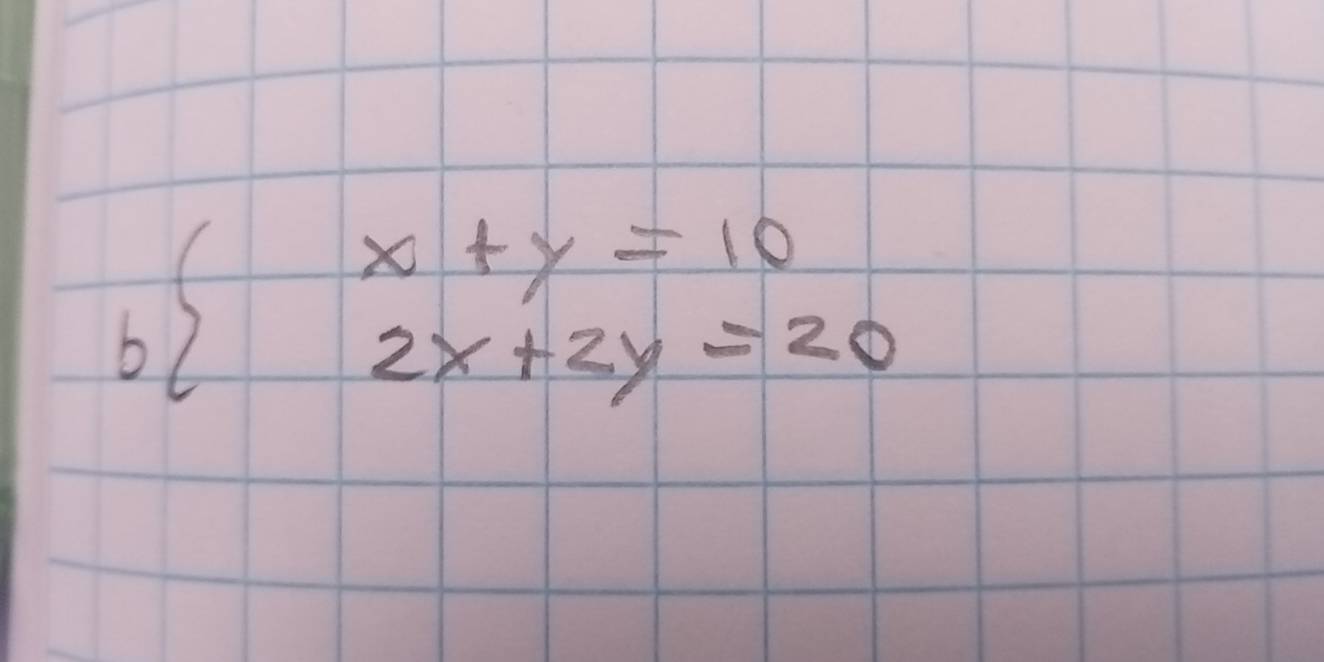 b{ x + y = 10
2x + 2y = 20